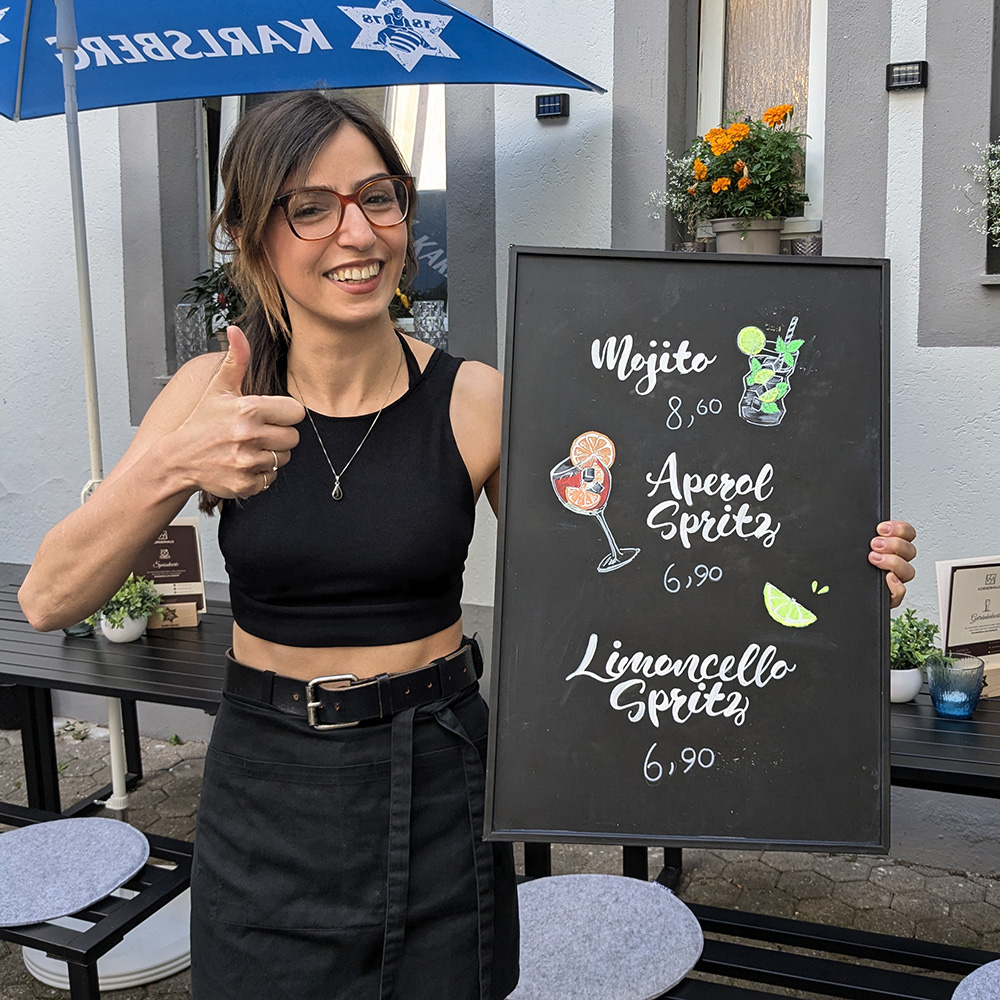 KARLSBERG
1878
Mojito
8,60
Aperol
Spritz
6,90
Limoncello
Spritz
6,90